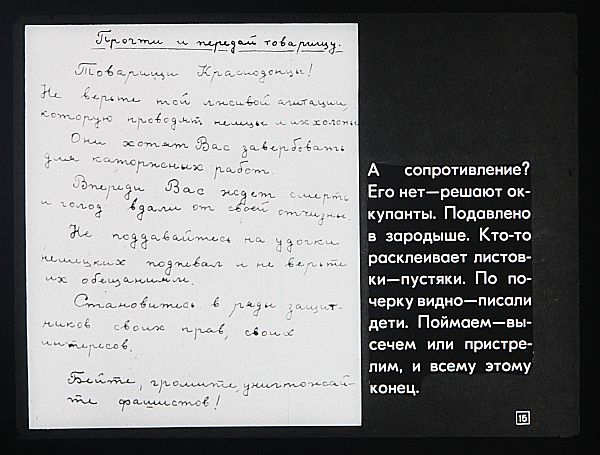 Прочти и передай товарищу.
Товарищи Краснодонцы!
Не верьте той лживой агитации,
которую проводят немцы и их холопы
Они хотят Вас завербовать
для каторжных работ.
Впереди Вас ждет смерть
и голод вдали от своей отчизны.
Не поддавайтесь на удочки
немецких подпевал и не верьте
их обещаниям.
Становитесь в ряды защит-
ников своих прав, своих
интересов.
Бейте, громите, уничтожай-
те фашистов!
А сопротивление?
Его нет—решают ок-
купанты. Подавлено
в зародыше. Кто-то
расклеивает листов-
ки—пустяки. По по-
черку видно—писали
дети. Поймаем—вы-
сечем или пристре-
лим, и всему этому
конец.
15